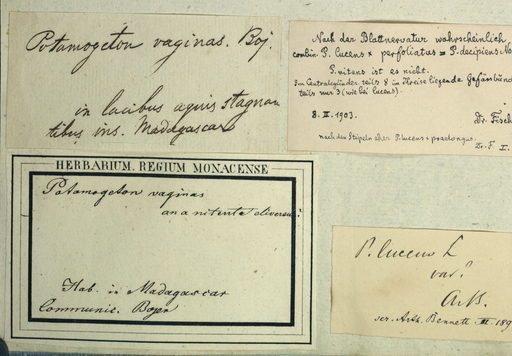 Potamogeton vaginas. Boj.
in lacibus aquis stagnan
tibus ins. Madagascar
Nach der Blattnervatur wahrscheinlich
combin. P. lucens x perfoliatus = P. decipiens No
P. nitens ist es nicht.
Im Centralcylinder teils 8 im Kreise liegende Gefässbünd
teils nur 5 (wie bei lucens).
8. II. 1903.
Dr. Fisch
nach den Stipeln eher P. lucens x praelongus.
Dr. F. I.
HERBARIUM REGIUM MONACENSE
Potamogeton vaginas
an a nitente diversus?
Hab. in Madagascar
Communic. Bojer
P. lucens L
var?
A.B.
scr. Arth. Bennett. III. 189